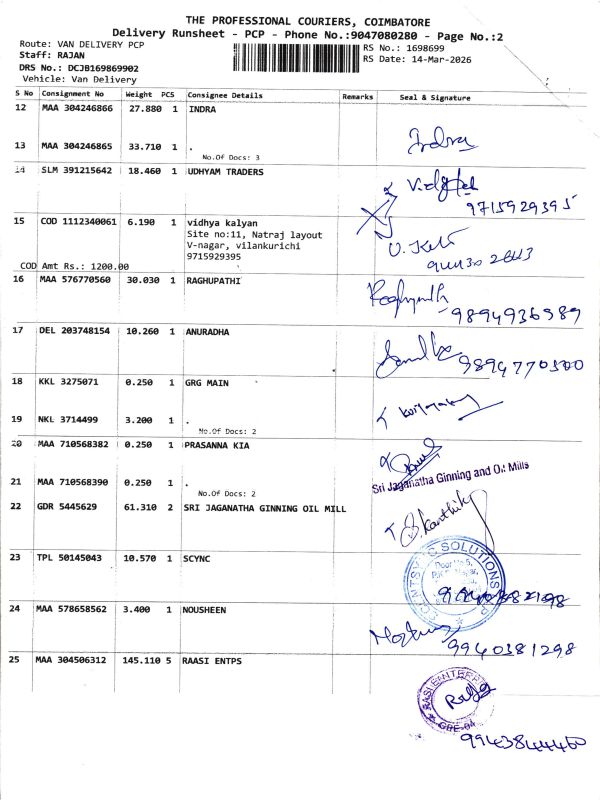 THE PROFESSIONAL COURIERS, COIMBATORE
Delivery Runsheet - PCP - Phone No.:9047080280 - Page No.:2
Route: VAN DELIVERY PCP
RS No.: 1698699
Staff: RAJAN
RS Date: 14-Mar-2026
DRS No.: DCJB169869902
Vehicle: Van Delivery
S No Consignment No Weight PCS Consignee Details Remarks Seal & Signature
12 MAA 304246866 27.880 1 INDRA
Indra
13 MAA 304246865 33.710 1 .
No.Of Docs: 3
14 SLM 391215642 18.460 1 UDHYAM TRADERS
9715929395
15 COD 1112340061 6.190 1 vidhya kalyan
Site no:11, Natraj layout
V-nagar, vilankurichi
9715929395
COD Amt Rs.: 1200.00
16 MAA 576770560 30.030 1 RAGHUPATHI
9894936989
17 DEL 203748154 10.260 1 ANURADHA
9894770500
18 KKL 3275071 0.250 1 GRG MAIN
19 NKL 3714499 3.200 1 .
No.Of Docs: 2
20 MAA 710568382 0.250 1 PRASANNA KIA
Sri Jaganatha Ginning and Oil Mills
21 MAA 710568390 0.250 1 .
No.Of Docs: 2
22 GDR 5445629 61.310 2 SRI JAGANATHA GINNING OIL MILL
S. Karthik
23 TPL 50145043 10.570 1 SCYNC
SOLUTIONS
24 MAA 578658562 3.400 1 NOUSHEEN
9940381298
25 MAA 304506312 145.110 5 RAASI ENTPS
9943844460